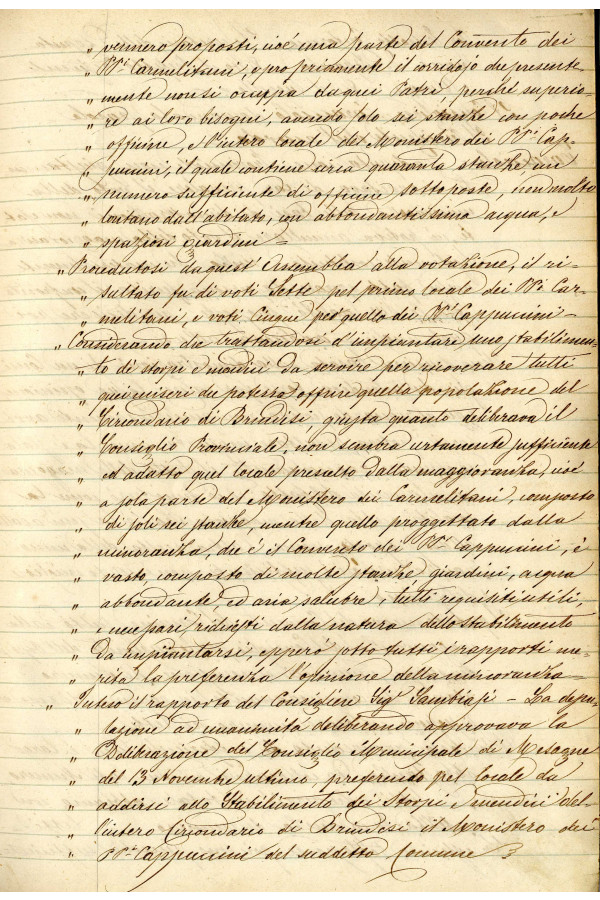 „ vennero proposti, cioé una parte del Convento dei
„ PP.i Carmelitani, e propriamente il corridojo che presente-
„ mente non si occupa da quei Padri, perché superio-
„ re ai loro bisogni, avendo solo sei stanze con poche
„ officine, e l'intero locale del Monistero dei PP.i Cap-
„ puccini, il quale contiene circa quaranta stanze un
„ numero sufficiente di officine sottoposte, non molto
„ lontano dall'abitato, con abbondantissima acqua, e
„ spaziosi giardini =
„ Procedutosi da quest'Assemblea alla votazione, il ri-
„ sultato fu di voti Sette pel primo locale dei PP.i Car-
„ melitani, e voti Cinque per quello dei PP.i Cappuccini -
„ Considerando che trattandosi d'impiantare uno stabilimen-
„ to di storpi e mendici da servire per ricoverare tutti
„ quei miseri che potesse offrire quella popolazione del
„ Circondario di Brindisi, giusta quanto deliberava il
„ Consiglio Provinciale, non sembra certamente sufficiente
„ ed adatto quel locale prescelto dalla maggioranza, cioé
„ a sola parte del Monistero dei Carmelitani, composto
„ di soli sei stanze, mentre quello proggettato dalla
„ minoranza, che é il Convento dei PP.i Cappuccini, é
„ vasto, composto di molte stanze, giardini, acqua
„ abbondante, ed aria salubre, tutti requisiti utili,
„ e necessari richiesti dalla natura dello stabilimento
„ da impiantarsi, epperó sotto tutti i rapporti me-
„ rita la preferenza l'opinione della minoranza -
„ Inteso il rapporto del Consigliere Sig.r Sambiasi - La depu-
„ tazione ad unanimitá deliberando approvava la
„ Deliberazione del Consiglio Municipale di Mesagne
„ del 13 Novembre ultimo, preferendo pel locale da
„ addirsi allo Stabilimento dei Storpi e mendici del-
„ l'intero Circondario di Brindisi il Monistero dei
„ PP.i Cappuccini del suddetto Comune